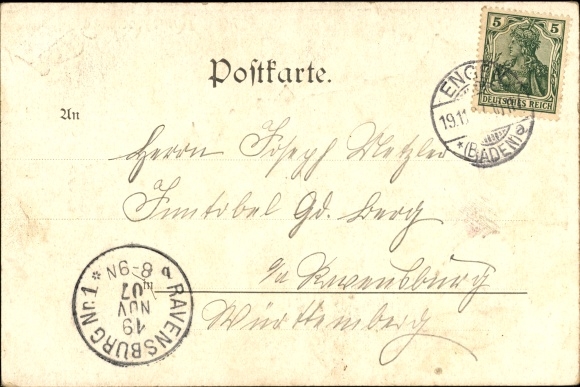 Postkarte.
5 5
DEUTSCHES REICH
ENGEN
19.11
*(BADEN)a
An
Herrn Joseph Metzler
Gd. Berg
Ravensburg
Württemberg
RAVENSBURG Nr. 1 * a
19
NOV
07
8-9N